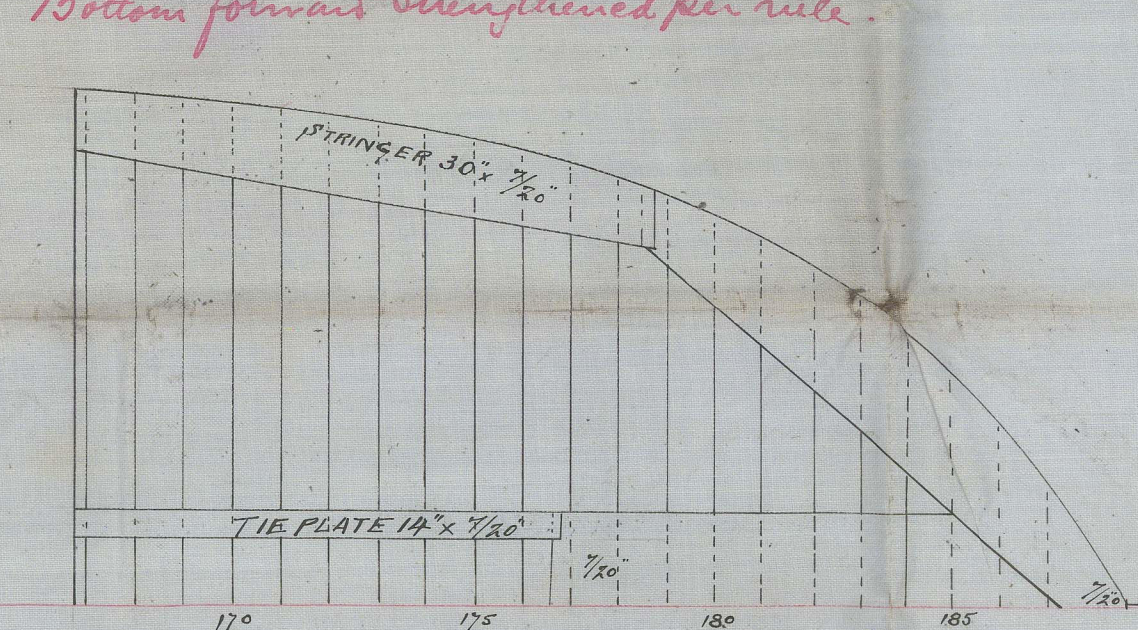 Bottom forward strengthened per rule.
STRINGER 30" x 7/20"
TIE PLATE 14" x 7/20"
7/20"
7/20"
170 175 180 185